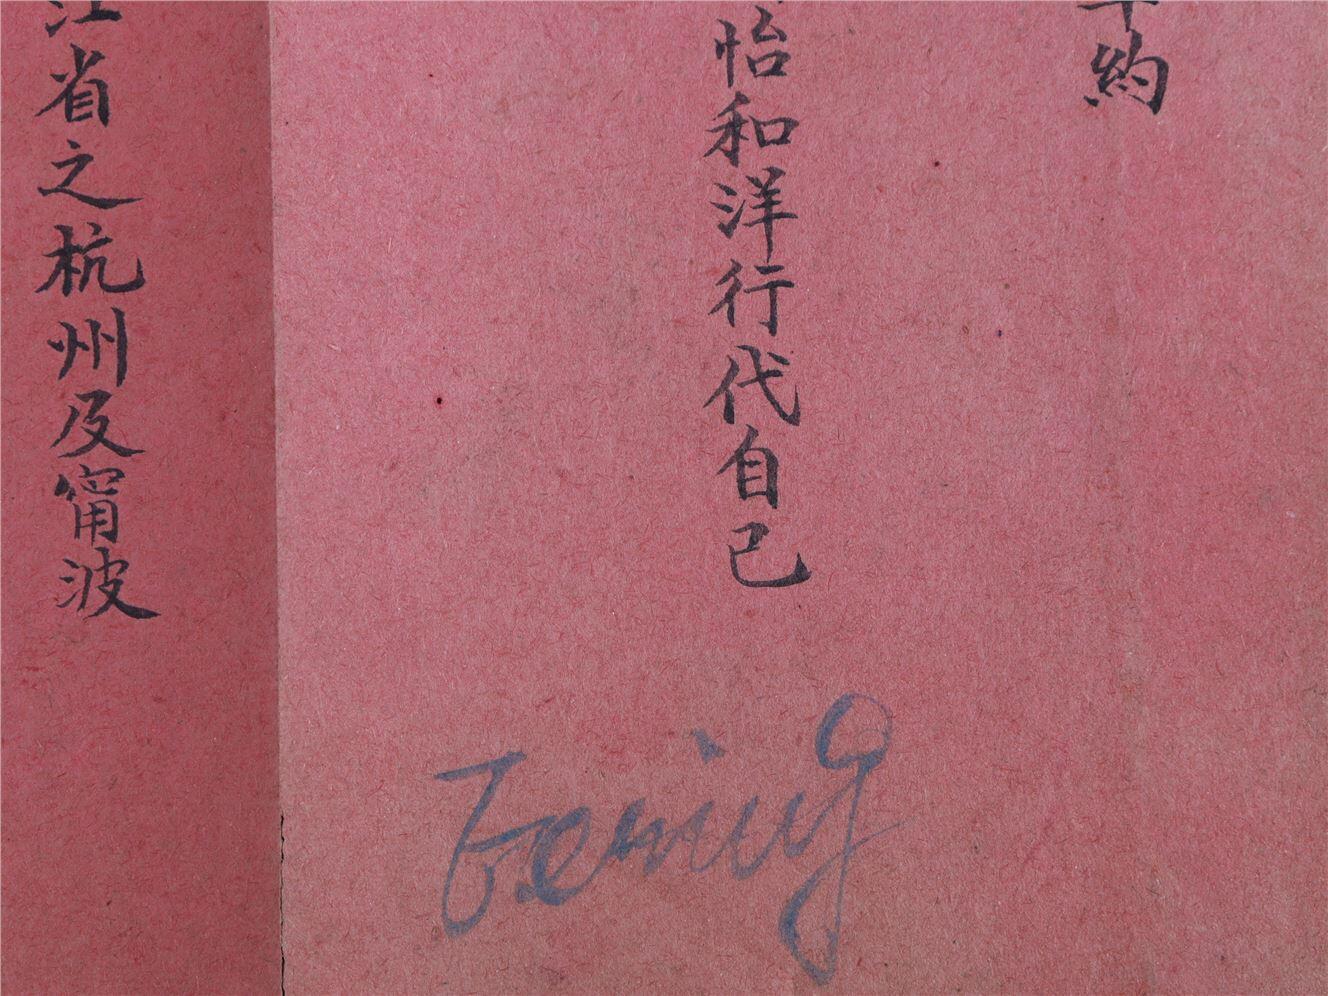 約
怡和洋行代自己
江省之杭州及甯波